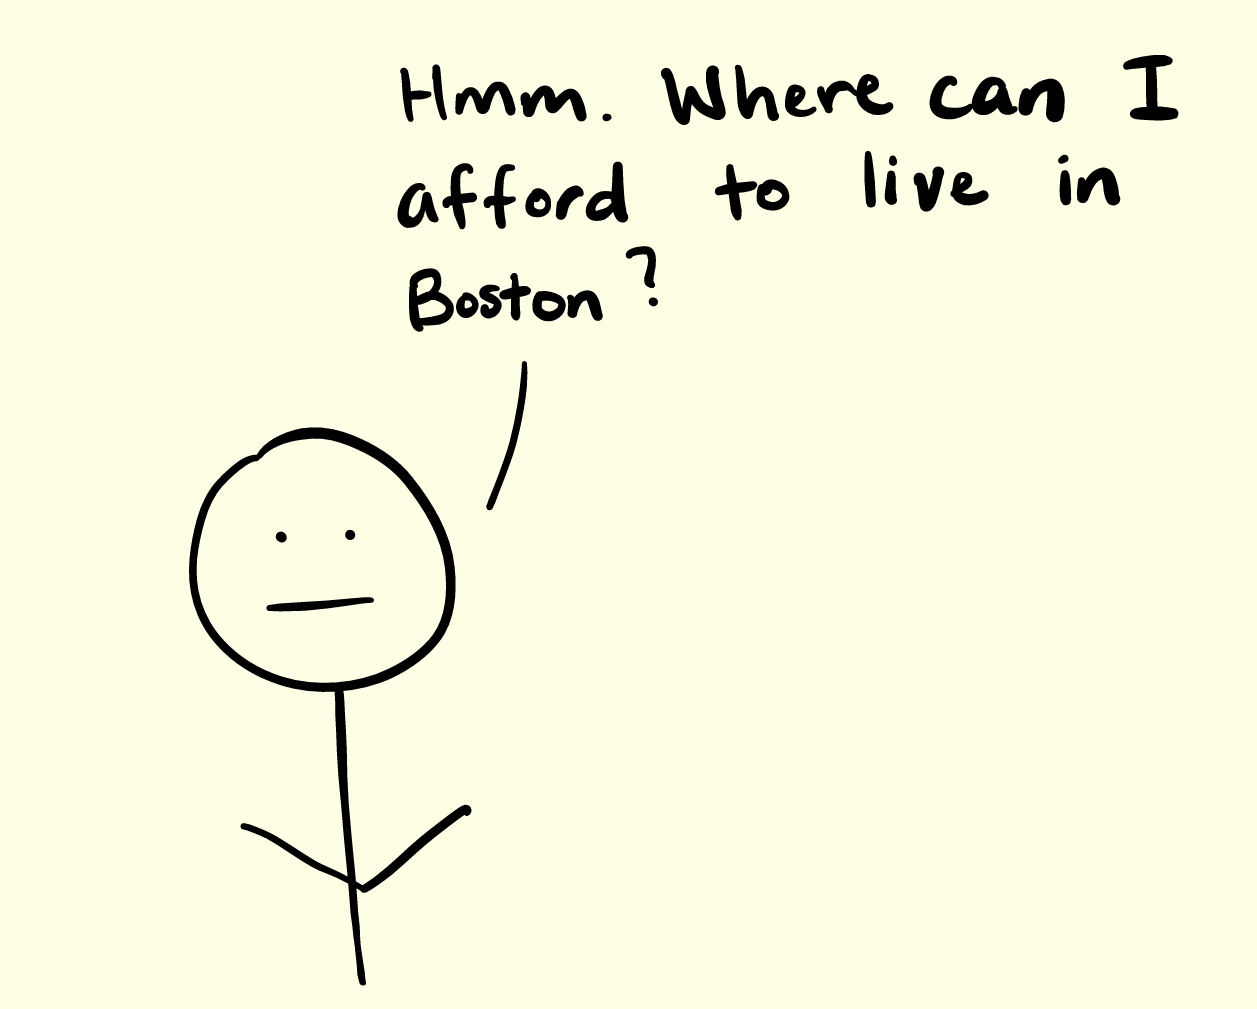 Hmm. Where can I
afford to live in
Boston?